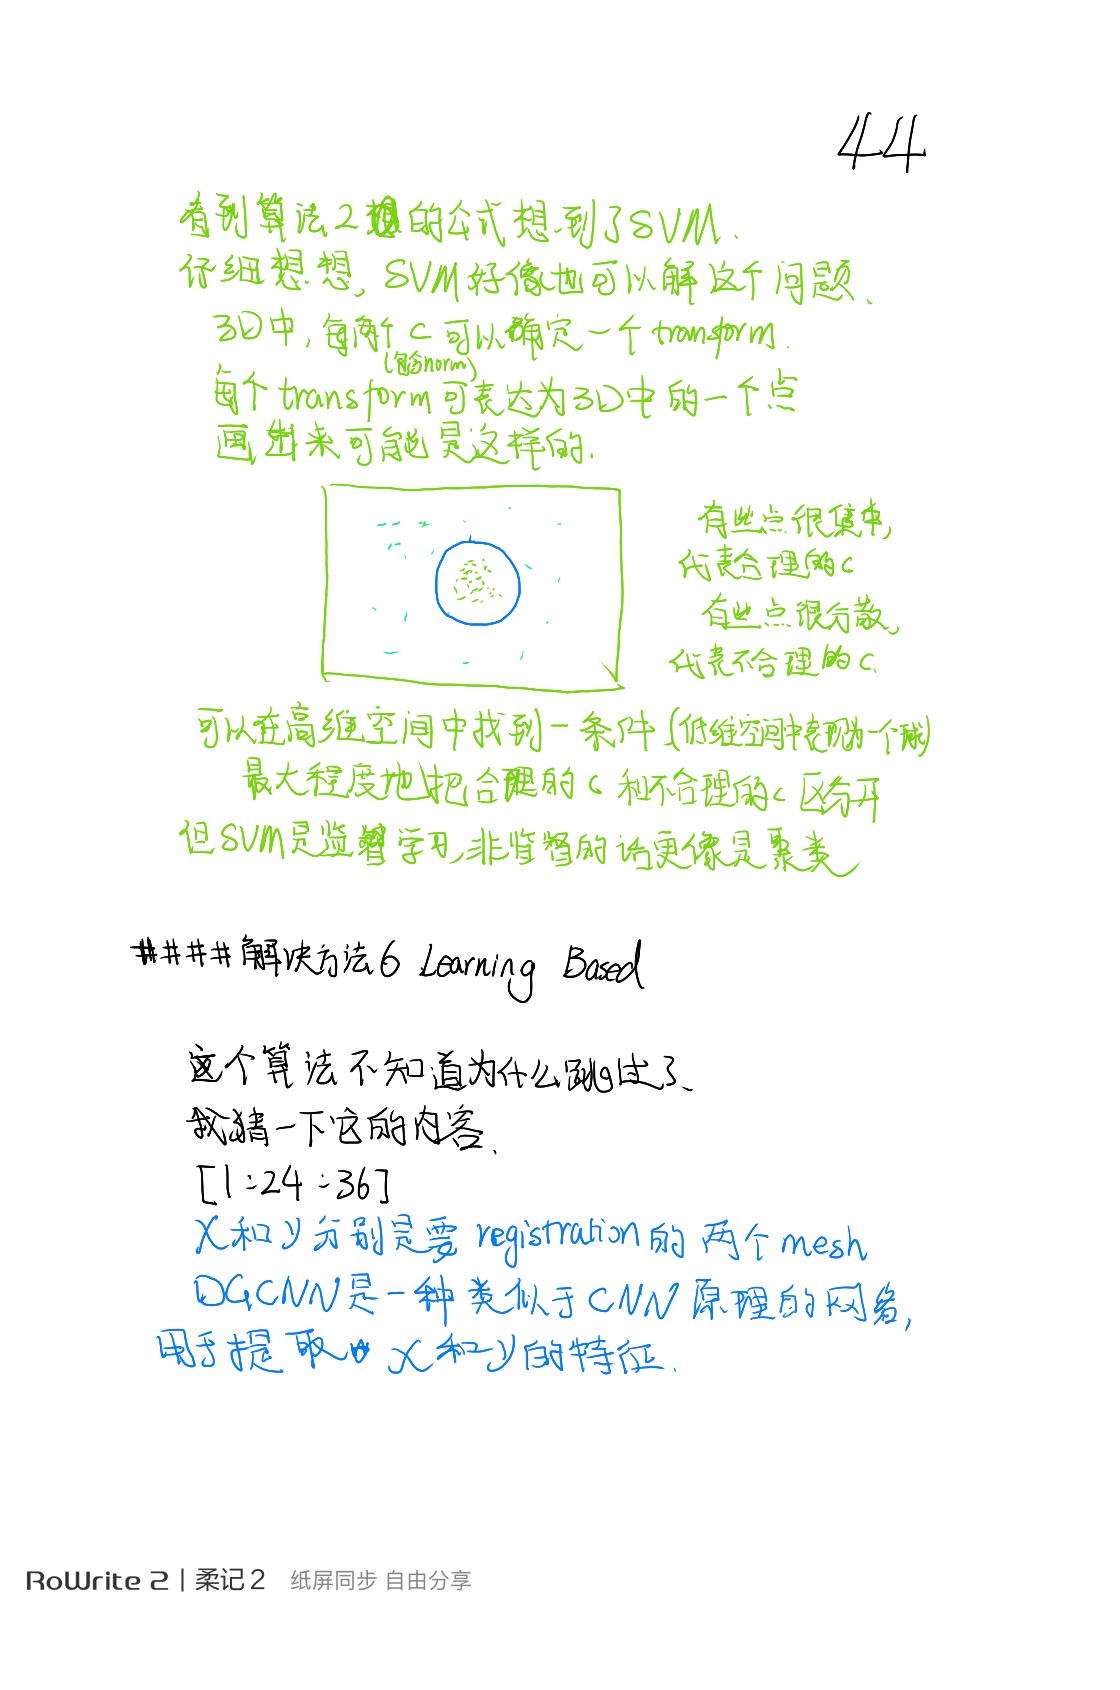 44
看到算法2的公式想到了SVM.
仔细想想, SVM好像也可以解这个问题.
3D中, 每两个C可以确定一个transform.
(包含norm)
每个transform可表达为3D中的一个点
画出来可能是这样的.
有些点很集中,
代表合理的C
有些点很分散,
代表不合理的C.
可以在高维空间中找到一条件(低维空间中表现为一个球)
最大程度地把合理的C和不合理的C区分开
但SVM是监督学习,非监督的话更像是聚类
####解决方法6 Learning Based
这个算法不知道为什么跳过了、
我猜一下它的内容.
[1:24:36]
X和y分别是要registration的两个mesh
DGCNN是一种类似于CNN原理的网络,
用于提取X和y的特征.
RoWrite 2 | 柔记2 纸屏同步 自由分享